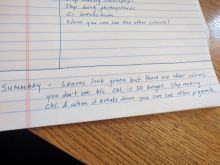 Stop making chlorophyll
Stop doing photosynthesis
C. breaks down
Now you can see the other colours!
SUMMARY - Leaves look green but there are other colours
you don't see b/c Chl. is SO bright. Stop making
Chl. & when it breaks down you can see other pigments.